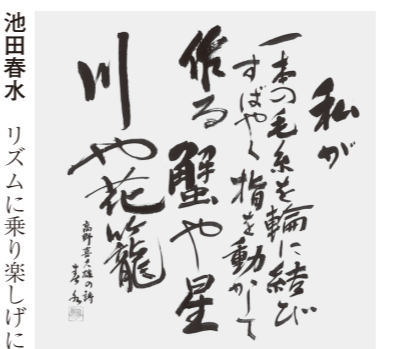 私が
一本の毛糸を輪に結び
すばやく指を動かして
作る蟹や星
川や花籠
高野喜久雄の詩
春水
池田春水　リズムに乗り楽しげに